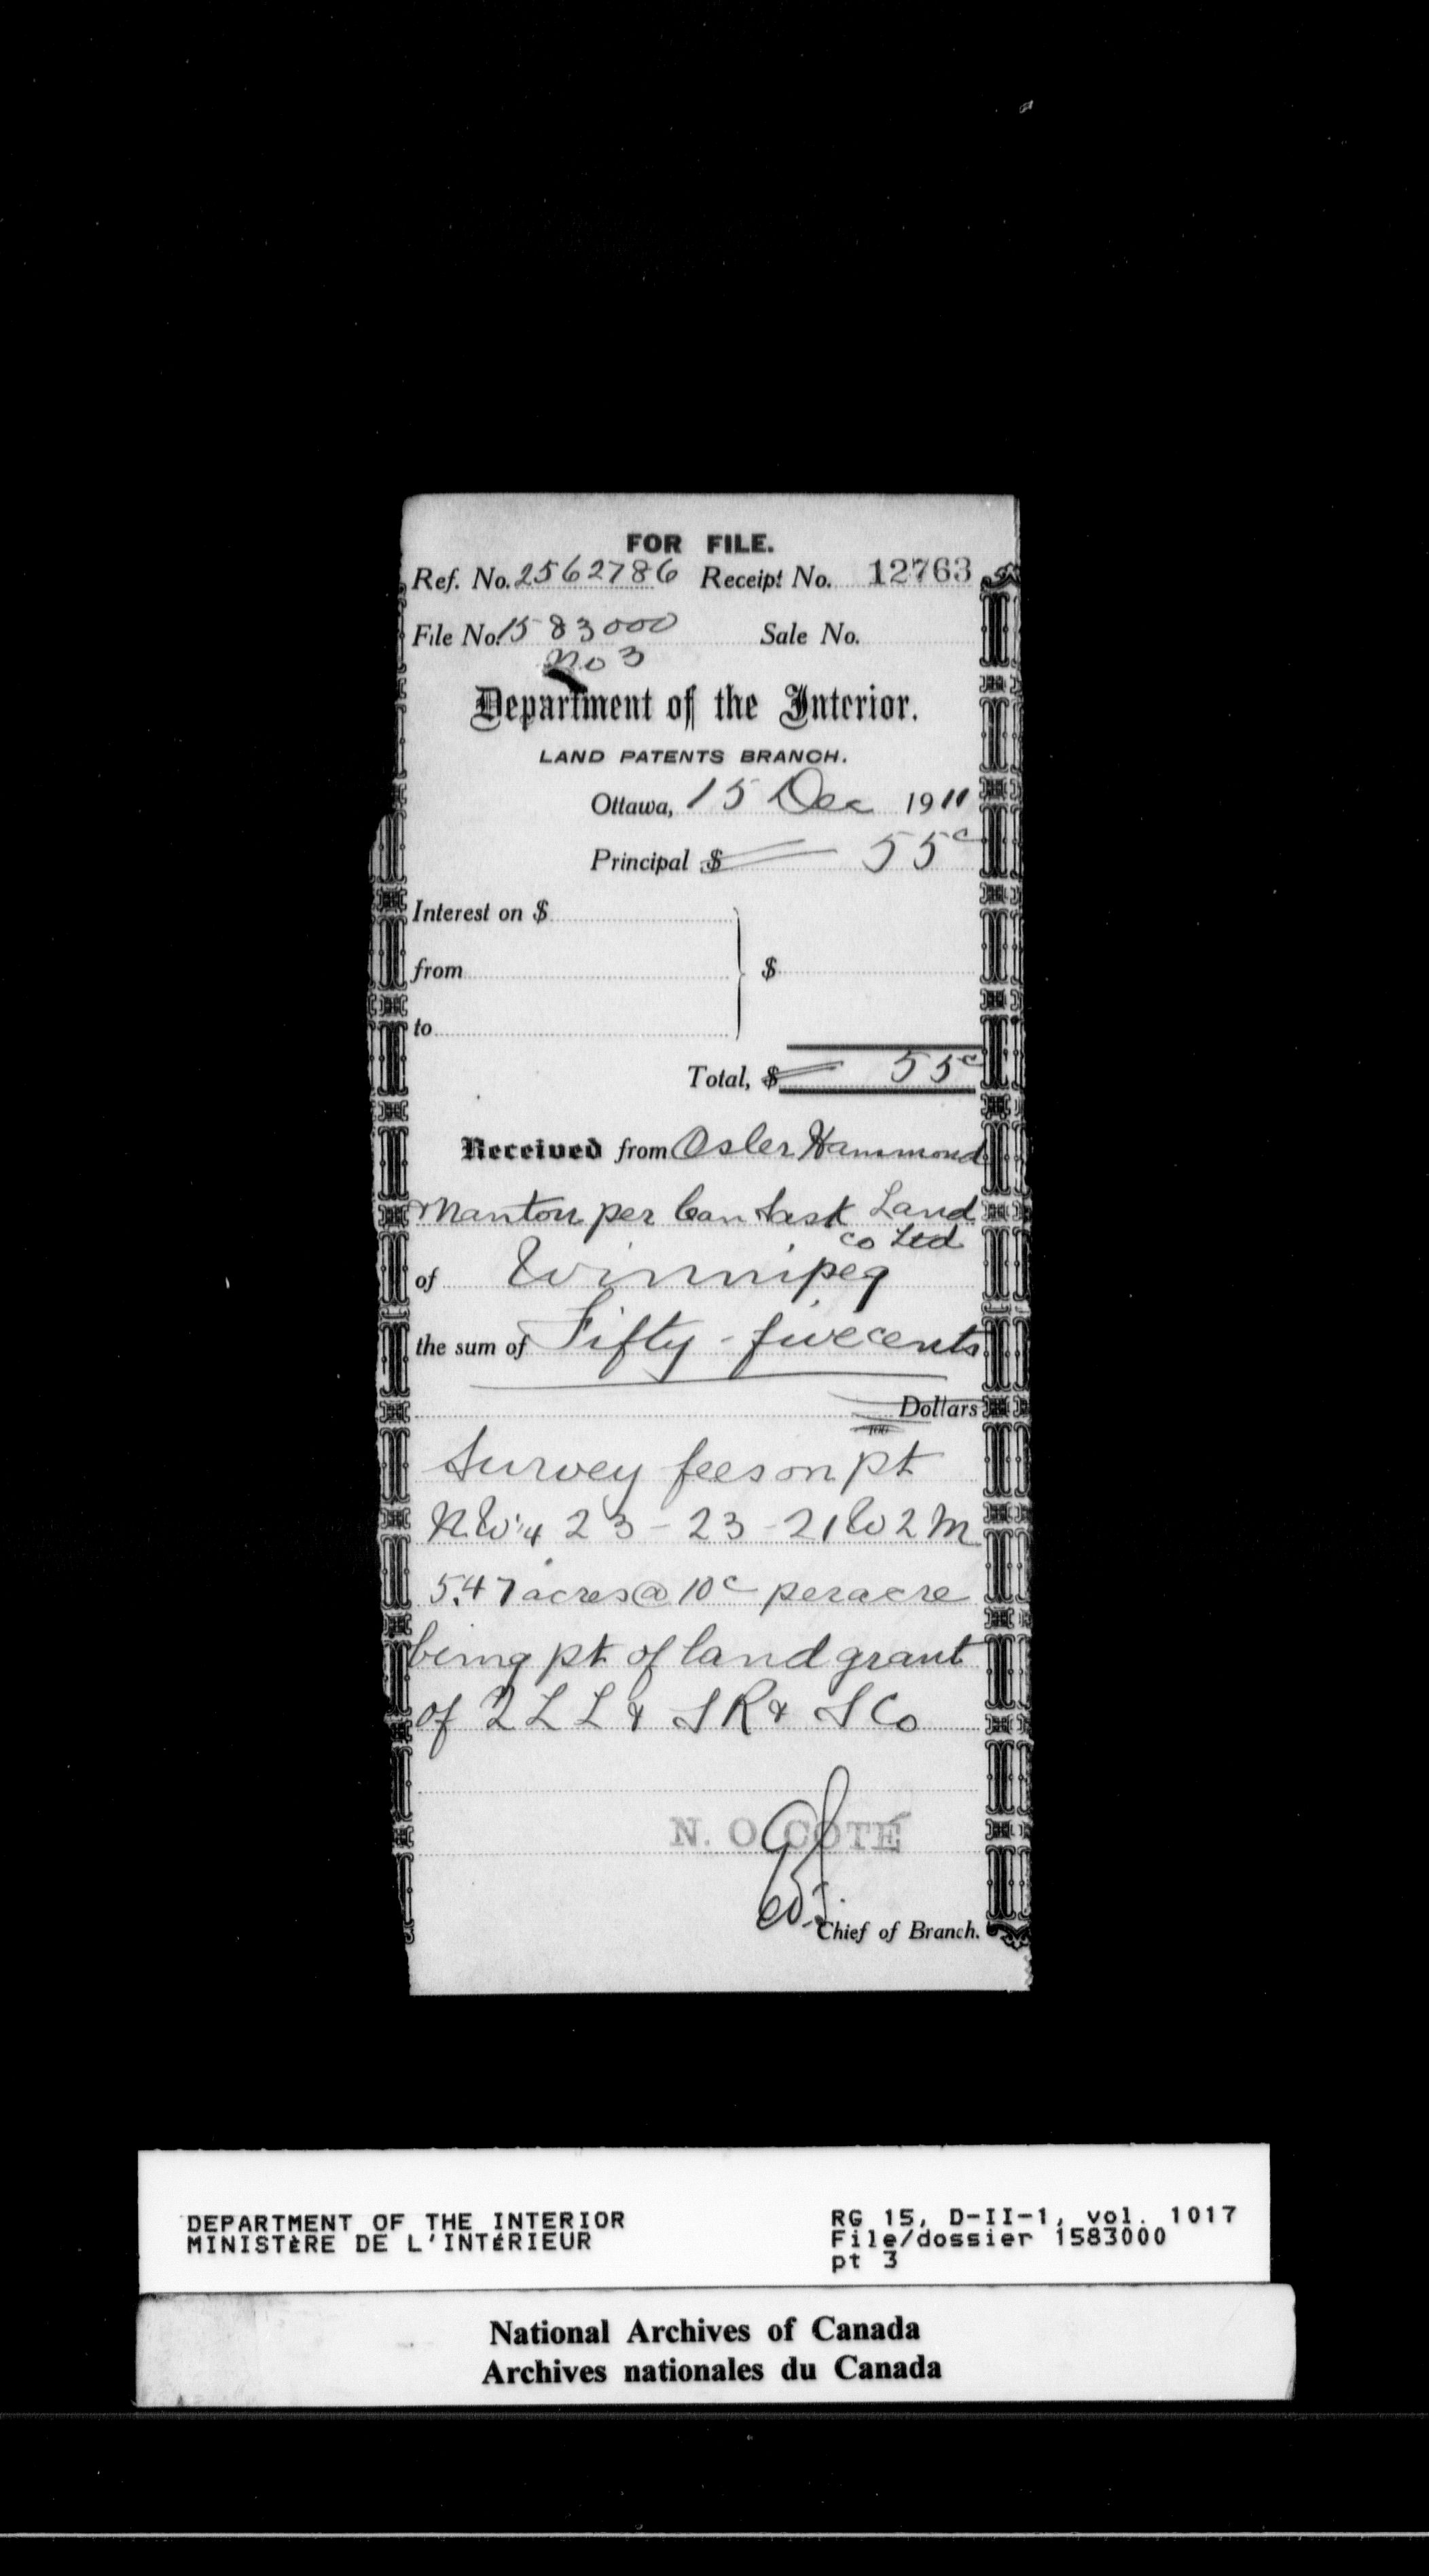 FOR FILE.
Ref. No. 2562786 Receipt No. 12763
File No. 1583000 Sale No.
No 3
Department of the Interior.
LAND PATENTS BRANCH.
Ottawa, 15 Dec 1911
Principal $ 55c
Interest on $
from $
to
Total, $ 55c
Received from Osler Hammond
Manton per Can Sask Land
Co Ltd
of Winnipeg
the sum of Fifty-five cents
Dollars
100
Survey fees on pt
N.W.¼ 23-23-21 W 2 M
5.47 acres @ 10c per acre
being pt of land grant
of Q L L & S R & S Co
N. O. COTÉ
Chief of Branch.
DEPARTMENT OF THE INTERIOR
MINISTÈRE DE L'INTÉRIEUR
RG 15, D-II-1, vol. 1017
File/dossier 1583000
pt 3
National Archives of Canada
Archives nationales du Canada